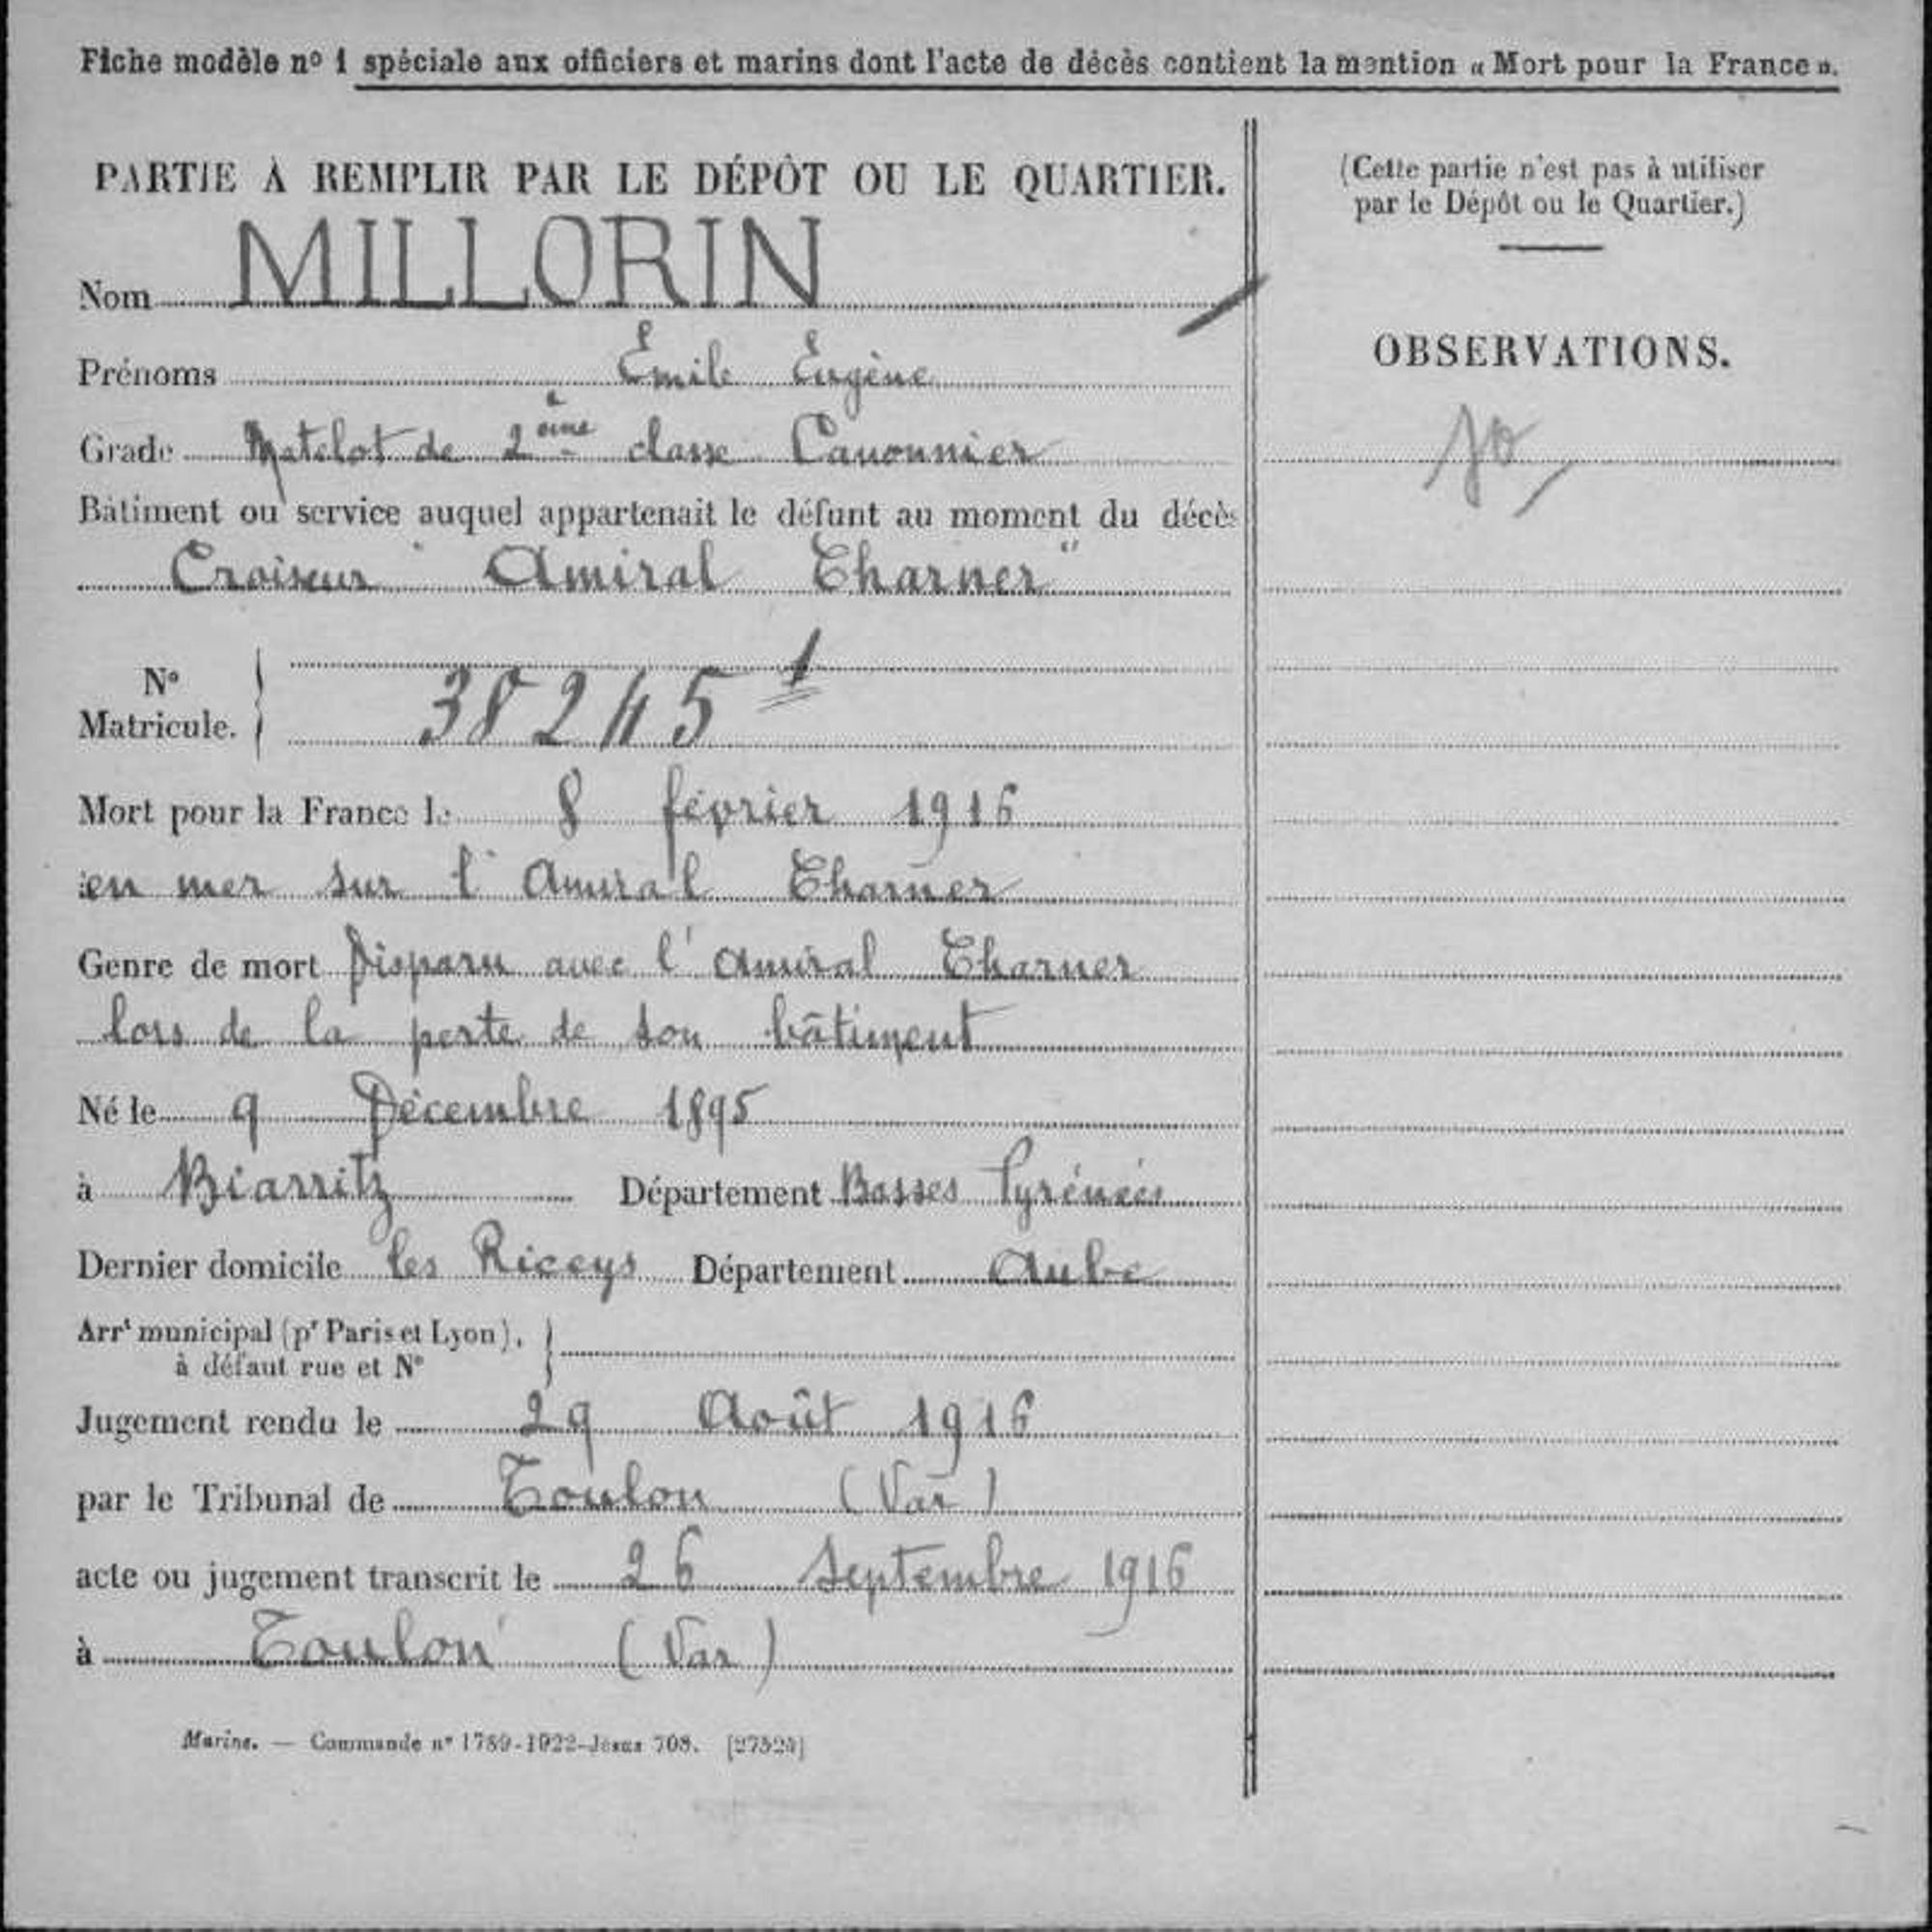 Fiche modèle n° 1 spéciale aux officiers et marins dont l'acte de décès contient la mention « Mort pour la France ».
PARTIE À REMPLIR PAR LE DÉPÔT OU LE QUARTIER.
Nom MILLORIN
Prénoms Émile Eugène
Grade Matelot de 2ème classe Canonnier
Bâtiment ou service auquel appartenait le défunt au moment du décès
Croiseur "Amiral Charner"
N° Matricule. 38245 1
Mort pour la France le 8 février 1916
en mer sur l'Amiral Charner
Genre de mort Disparu avec l'Amiral Charner
lors de la perte de son bâtiment
Né le 9 Décembre 1895
à Biarritz Département Basses Pyrénées
Dernier domicile les Riceys Département Aube
Arrt municipal (pr Paris et Lyon),
à défaut rue et N°
Jugement rendu le 29 Août 1916
par le Tribunal de Toulon (Var)
acte ou jugement transcrit le 26 Septembre 1916
à Toulon (Var)
Marine. — Commande n° 1789-1922-Jésus 708. [27524]
(Cette partie n'est pas à utiliser
par le Dépôt ou le Quartier.)
OBSERVATIONS.